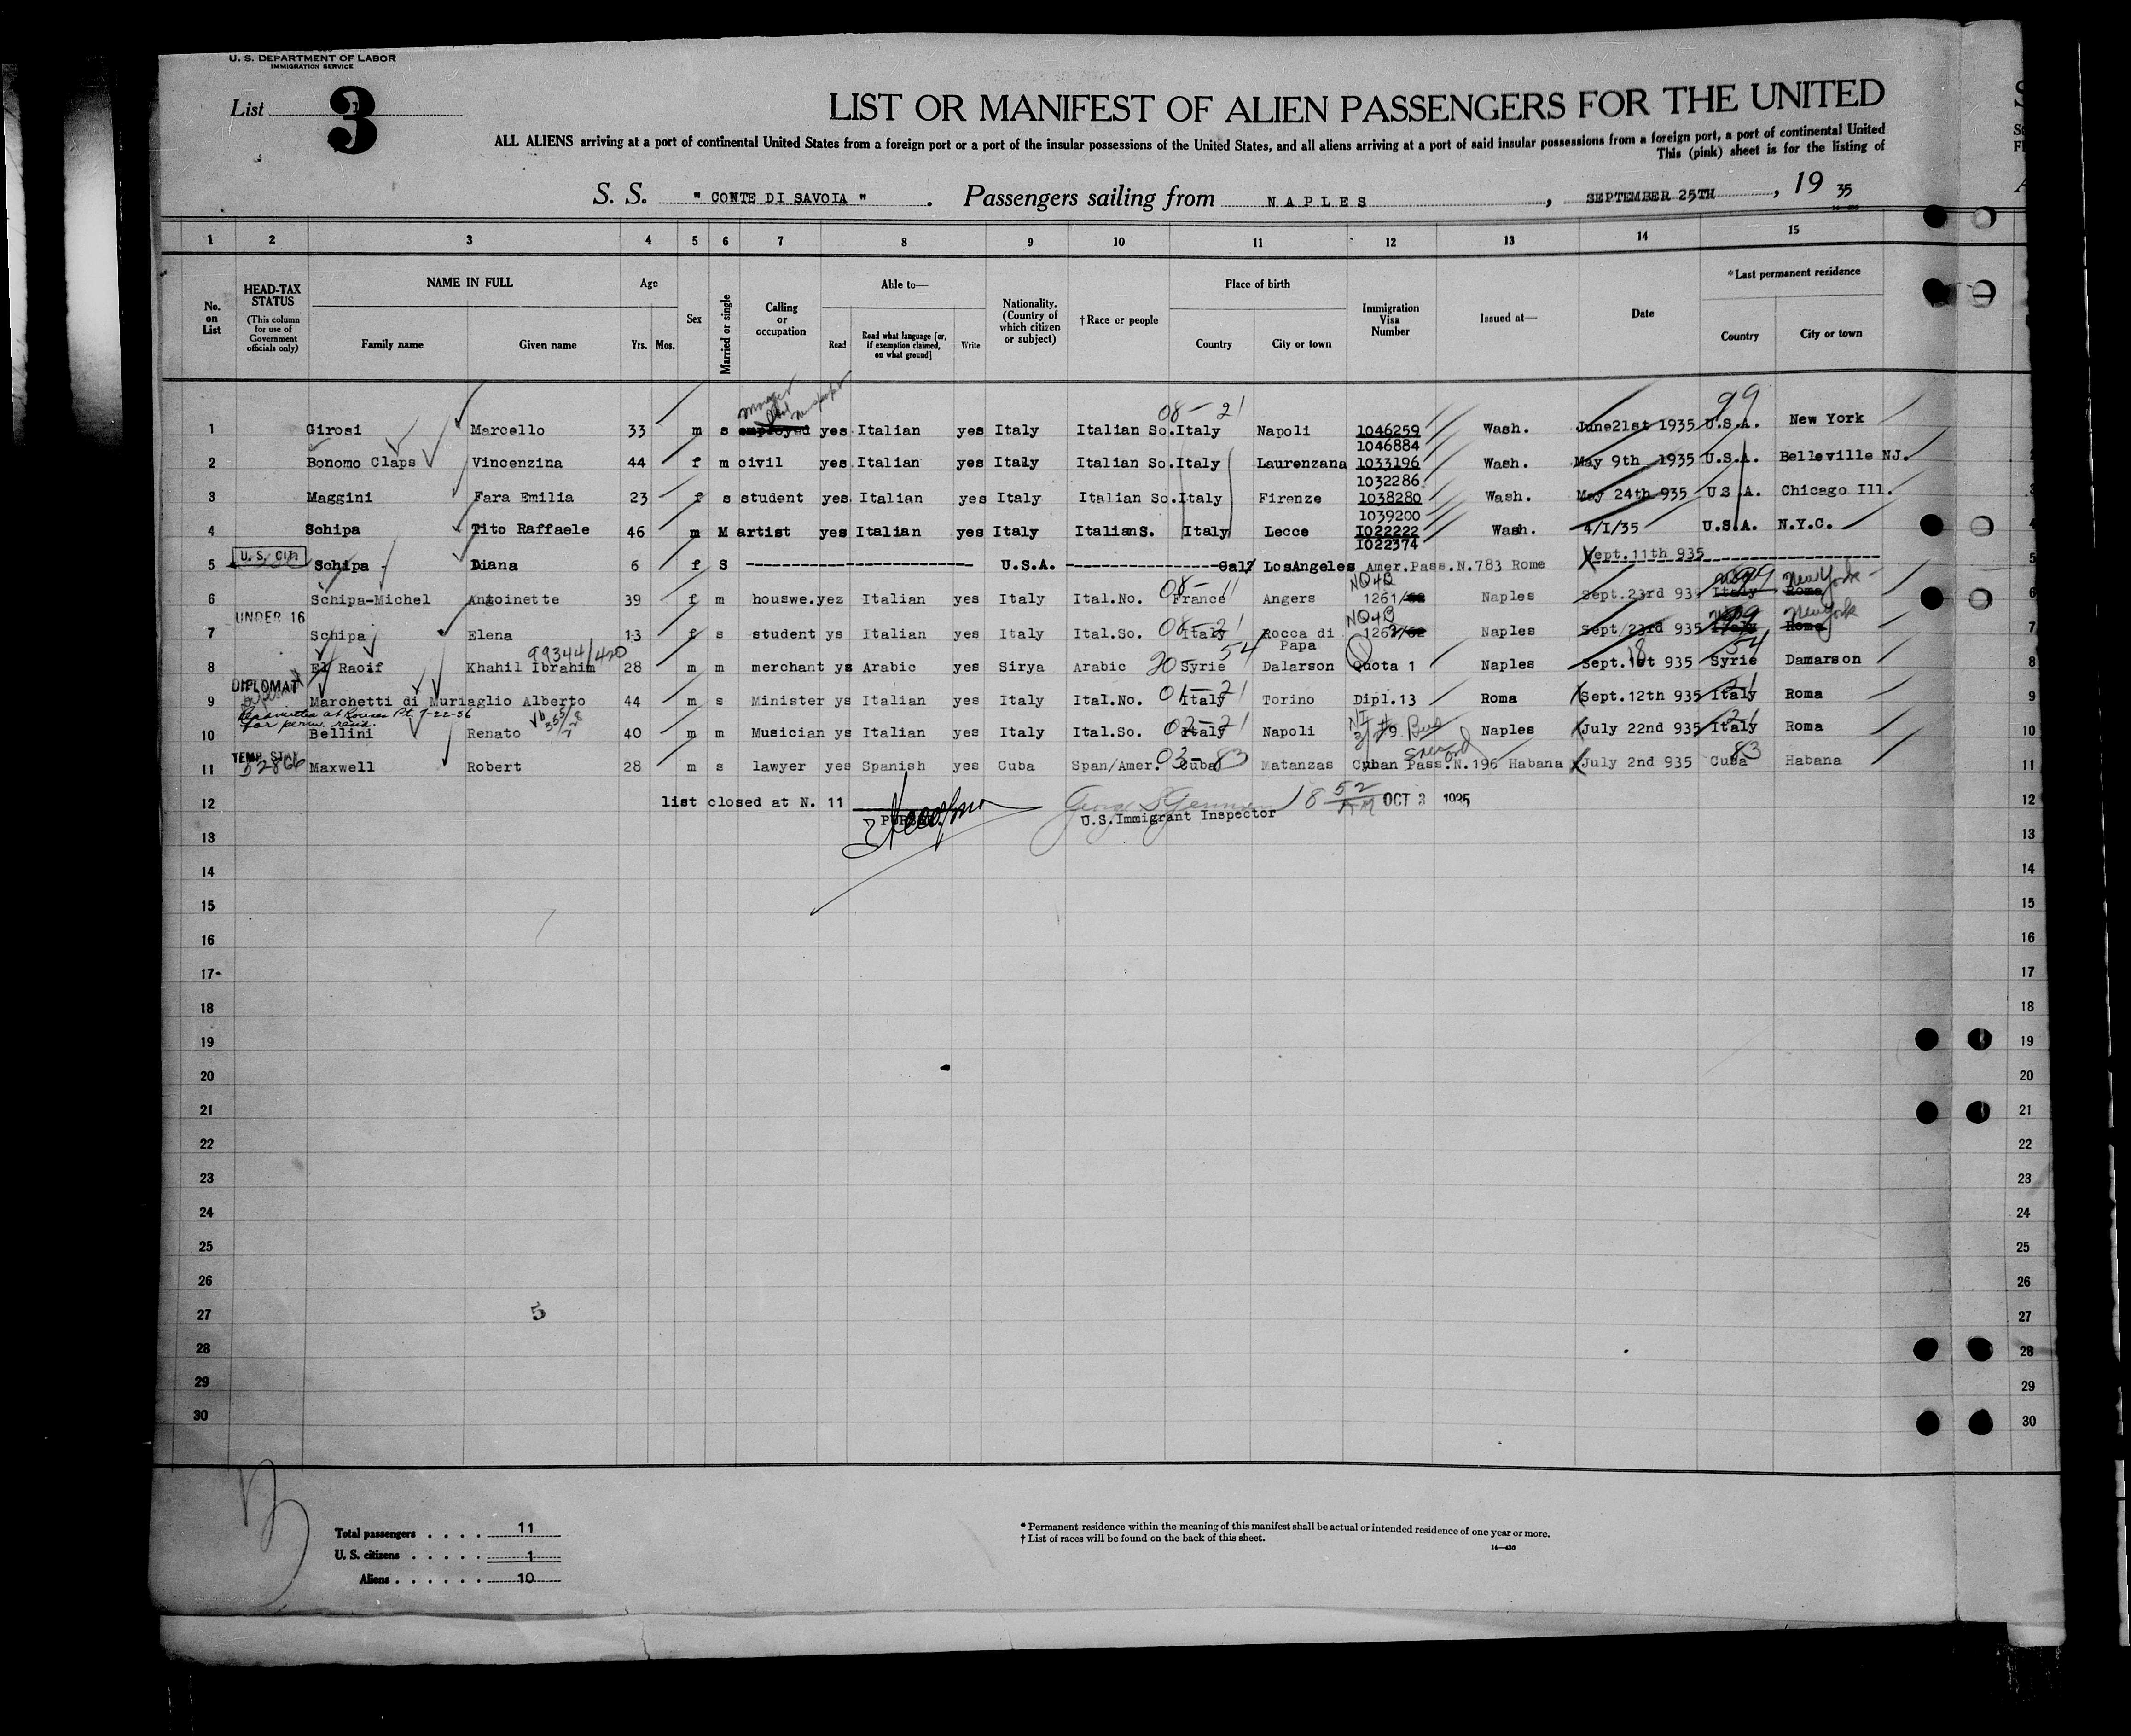 U. S. DEPARTMENT OF LABOR
IMMIGRATION SERVICE
List 3
LIST OR MANIFEST OF ALIEN PASSENGERS FOR THE UNITED
ALL ALIENS arriving at a port of continental United States from a foreign port or a port of the insular possessions of the United States, and all aliens arriving at a port of said insular possessions from a foreign port, a port of continental United
This (pink) sheet is for the listing of
S. S. " CONTE DI SAVOIA " . Passengers sailing from NAPLES , SEPTEMBER 25TH , 19 35
1 2 3 4 5 6 7 8 9 10 11 12 13 14 15
No. on List
HEAD-TAX STATUS (This column for use of Government officials only)
NAME IN FULL Family name Given name
Age Yrs. Mos.
Sex
Married or single
Calling or occupation
Able to— Read Read what language [or, if exemption claimed, on what ground] Write
Nationality. (Country of which citizen or subject)
†Race or people
Place of birth Country City or town
Immigration Visa Number
Issued at—
Date
*Last permanent residence Country City or town
08- 21 99
1 Girosi Marcello 33 m s employed yes Italian yes Italy Italian So. Italy Napoli 1046259 Wash. June21st 1935 U.S.A. New York
1046884
2 Bonomo Claps Vincenzina 44 f m civil yes Italian yes Italy Italian So. Italy Laurenzana 1033196 Wash. May 9th 1935 U.S.A. Belleville NJ.
1032286
3 Maggini Fara Emilia 23 f s student yes Italian yes Italy Italian So. Italy Firenze 1038280 Wash. May 24th 935 U.S.A. Chicago Ill.
1039200
4 Schipa Tito Raffaele 46 m M artist yes Italian yes Italy ItalianS. Italy Lecce I022222 Wash. 4/I/35 U.S.A. N.Y.C.
I022374
U. S. CIT.
5 Schipa - Diana 6 f S U.S.A. Cal. LosAngeles Amer.Pass.N.783 Rome Sept.11th 935
NQ4B New York
6 Schipa-Michel Antoinette 39 f m houswe.yez Italian yes Italy Ital.No. 08- 11 France Angers 1261/62 Naples Sept.23rd 935 Italy Roma
UNDER 16 NQ4B New York
7 Schipa Elena 13 f s student ys Italian yes Italy Ital.So. 08- 21 Italy Rocca di Papa 1262/62 Naples Sept/23rd 935 Italy Roma
99344/420 54 18 54
8 El Raoif Khahil Ibrahim 28 m m merchant ys Arabic yes Sirya Arabic 20 Syrie Dalarson Quota 1 Naples Sept.1st 935 Syrie Damarson
DIPLOMAT
9 Marchetti di Muriaglio Alberto 44 m s Minister ys Italian yes Italy Ital.No. 01- 21 Italy Torino Dipl.13 Roma Sept.12th 935 Italy Roma
Readmitted at Rouses Pt. 9-22-36
for perm. resid.
10 Bellini Renato 40 m m Musician ys Italian yes Italy Ital.So. 02- 21 Italy Napoli Naples July 22nd 935 Italy Roma
TEMP. STAY
11 Maxwell Robert 28 m s lawyer yes Spanish yes Cuba Span/Amer. 03- 83 Cuba Matanzas Cuban Pass.N.196 Habana July 2nd 935 Cuba 83 Habana
12 list closed at N. 11 8 52 AM OCT 3 1935
PURSER U.S.Immigrant Inspector
13
14
15
16
17
18
19
20
21
22
23
24
25
26
27 5
28
29
30
Total passengers . . . . 11
U. S. citizens . . . . . 1
Aliens . . . . . . 10
* Permanent residence within the meaning of this manifest shall be actual or intended residence of one year or more.
† List of races will be found on the back of this sheet.
14—430